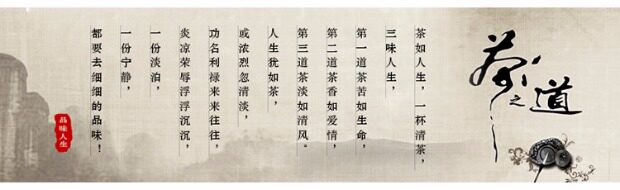 茶之道
茶如人生，一杯清茶，
三味人生，
第一道茶苦如生命，
第二道茶香如爱情，
第三道茶淡如清风。
人生犹如茶，
或浓烈忽清淡，
功名利禄来来往往，
炎凉荣辱浮浮沉沉，
一份淡泊，
一份宁静，
都要去细细的品味！
品味人生